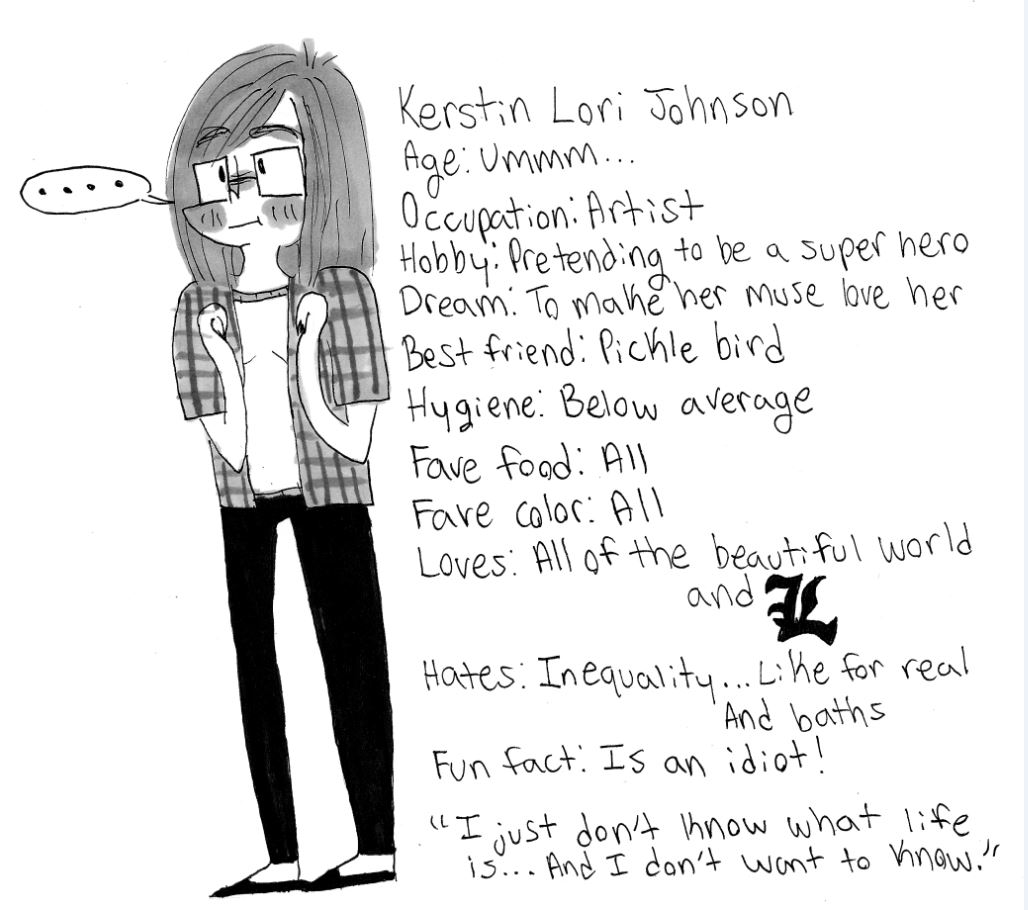 Kerstin Lori Johnson
Age: Ummm...
Occupation: Artist
Hobby: Pretending to be a super hero
Dream: To make her muse love her
Best friend: Pickle bird
Hygiene: Below average
Fave food: All
Fave color: All
Loves: All of the beautiful world
and L
Hates: Inequality...Like for real
And baths
Fun fact: Is an idiot!
"I just don't know what life
is... And I don't want to know."
....